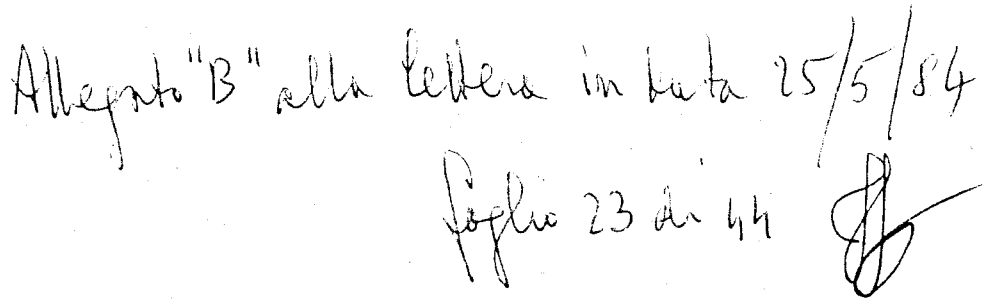 Allegato "B" alla lettera in data 25/5/84
foglio 23 di 44